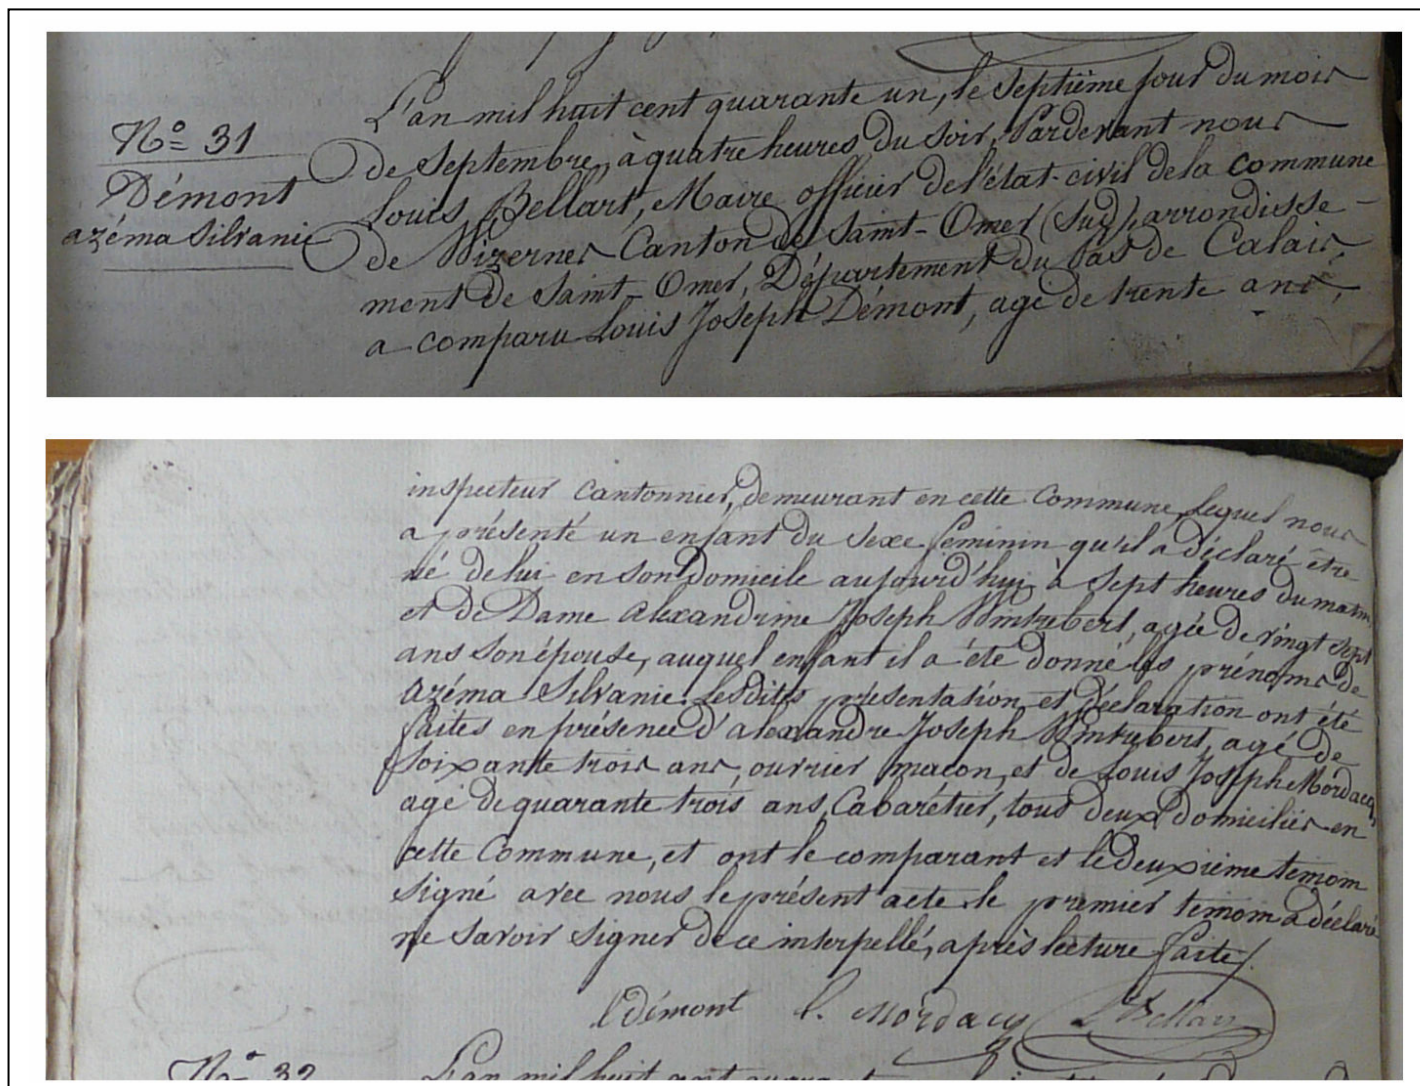 N° 31
Démont
azéma Silvanie
L'an mil huit cent quarante un, le Septième jour du mois
de Septembre, à quatre heures du Soir, Pardevant nous
Louis Bellart, Maire officier de l'état-civil de la commune
de Wizernes Canton de Saint-Omer (Sud), arrondisse-
ment de Saint-Omer, Département du Pas de Calais,
a comparu Louis Joseph Démont, agé de trente ans,
inspecteur Cantonnier, demeurant en cette Commune, Lequel nous
a présenté un enfant du Sexe féminin qu'il a déclaré être
né de lui en Son Domicile aujourd'hui à Sept heures du matin
et de Dame alexandrine Joseph Wintrebert, agée de vingt Sept
ans Son épouse, auquel enfant il a été donné les prénoms de
Azéma Silvanie. Lesdites présentation et Déclaration ont été
faites en présence d'alexandre Joseph Wintrebert, agé de
Soixante trois ans, ouvrier maçon, et de Louis Joseph Mordacq
agé de quarante trois ans, Cabarétier, tous deux Domiciliés en
cette Commune, et ont le comparant et le Deuxième temoin
Signé avec nous le présent acte, le premier temoin a déclaré
ne Savoir Signer de ce interpellé, après lecture faite.
l démont L. Mordacq L Bellart
N° 32
L'an mil huit cent quarante